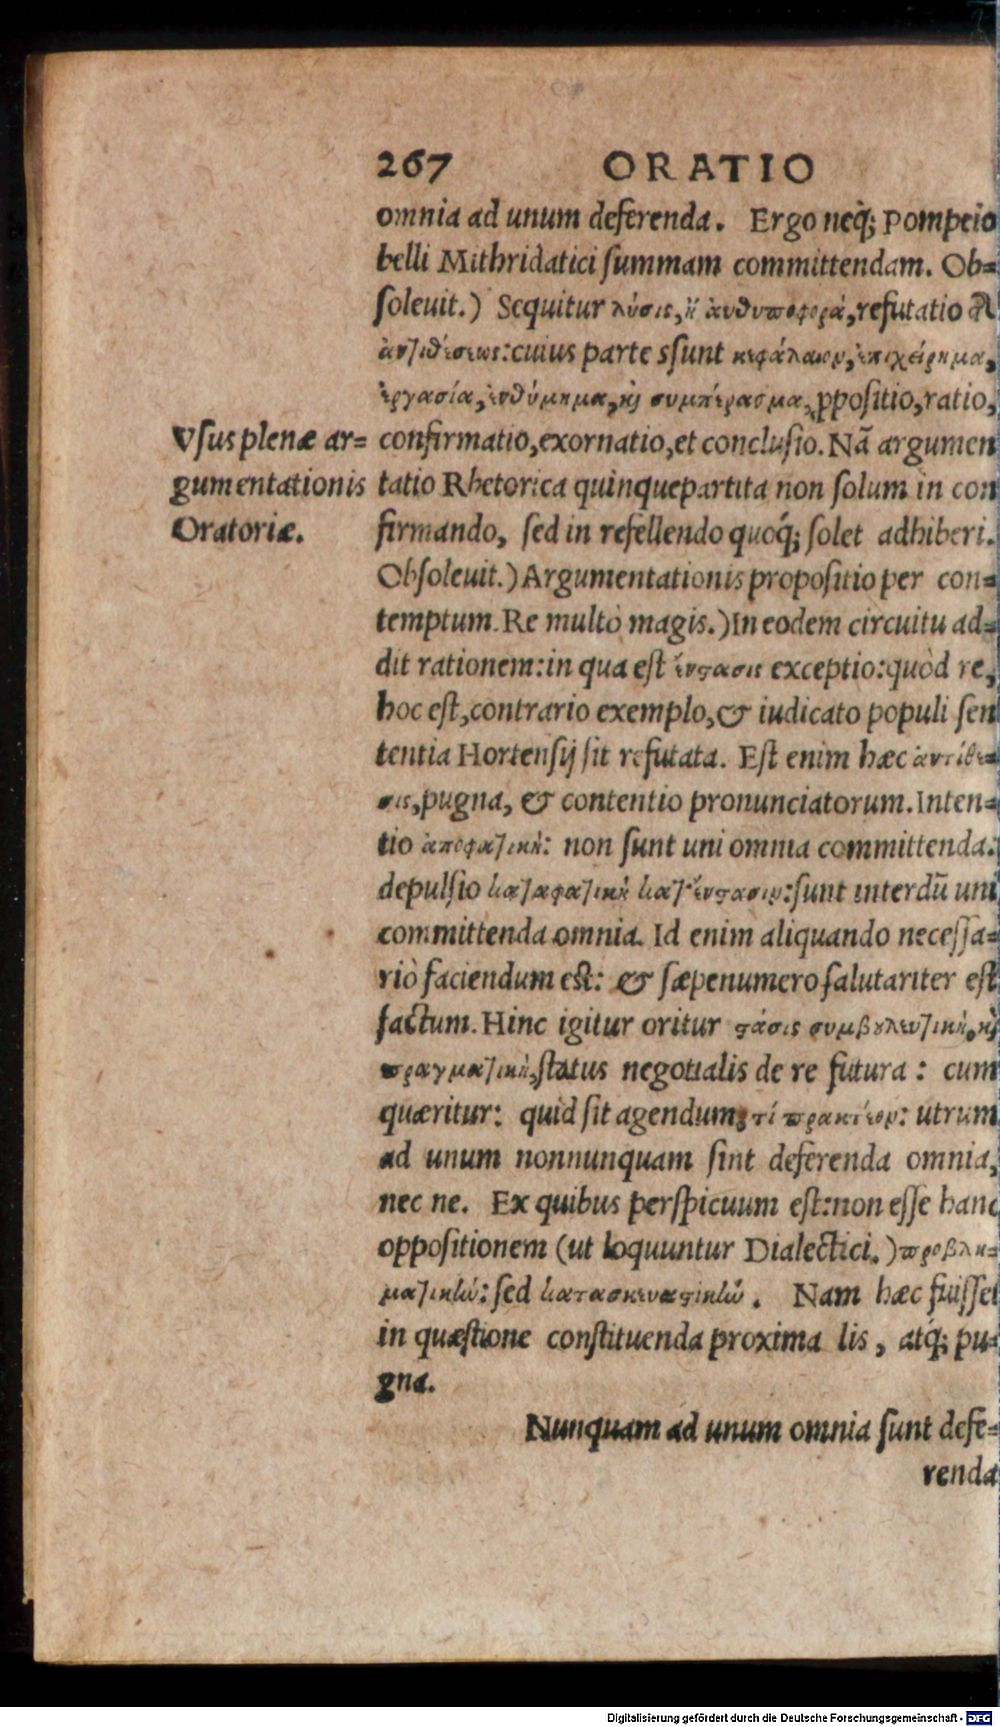 267 ORATIO
omnia ad unum deferenda. Ergo neq; Pompeio
belli Mithridatici summam committendam. Ob=
soleuit.) Sequitur λύσις, ἢ ἀνθυποφορά, refutatio τῆ
ἀντιθέσεως: cuius parte ssunt κεφάλαιον, ἐπιχείρημα,
ἐργασία, ἐνθύμημα, κỳ συμπέρασμα, ꝓpositio, ratio,
Vsus plenæ ar=
gumentationis
Oratoriæ.
confirmatio, exornatio, et conclusio. Nã argumen
tatio Rhetorica quinquepartita non solum in con
firmando, sed in refellendo quoq́; solet adhiberi.
Obsoleuit.) Argumentationis propositio per con=
temptum. Re multò magis.) In eodem circuitu ad=
dit rationem: in qua est ἔνϛασις exceptio: quòd re,
hoc est, contrario exemplo, & iudicato populi sen
tentia Hortensij sit refutata. Est enim hæc ἀντίθε=
σις, pugna, & contentio pronunciatorum. Inten=
tio ἀποφατική: non sunt uni omnia committenda:
depulsio καταφατικὴ κατ' ἔνϛασιν: sunt interdũ uni
committenda omnia. Id enim aliquando necessa=
riò faciendum est: & sæpenumero salutariter est
factum. Hinc igitur oritur ϛάσις συμβουλευτικὴ, κỳ
πραγματικὴ, status negotialis de re futura: cum
quæritur: quid sit agendum; τί πρακτέον: utrum
ad unum nonnunquam sint deferenda omnia,
nec ne. Ex quibus perspicuum est: non esse hanc
oppositionem (ut loquuntur Dialectici.) προβλη=
ματικὼ: sed κατασκευαϛικὼ. Nam hæc fuisset
in quæstione constituenda proxima lis, atq́; pu=
gna.
Nunquam ad unum omnia sunt defe=
renda
Digitalisierung gefördert durch die Deutsche Forschungsgemeinschaft - DFG